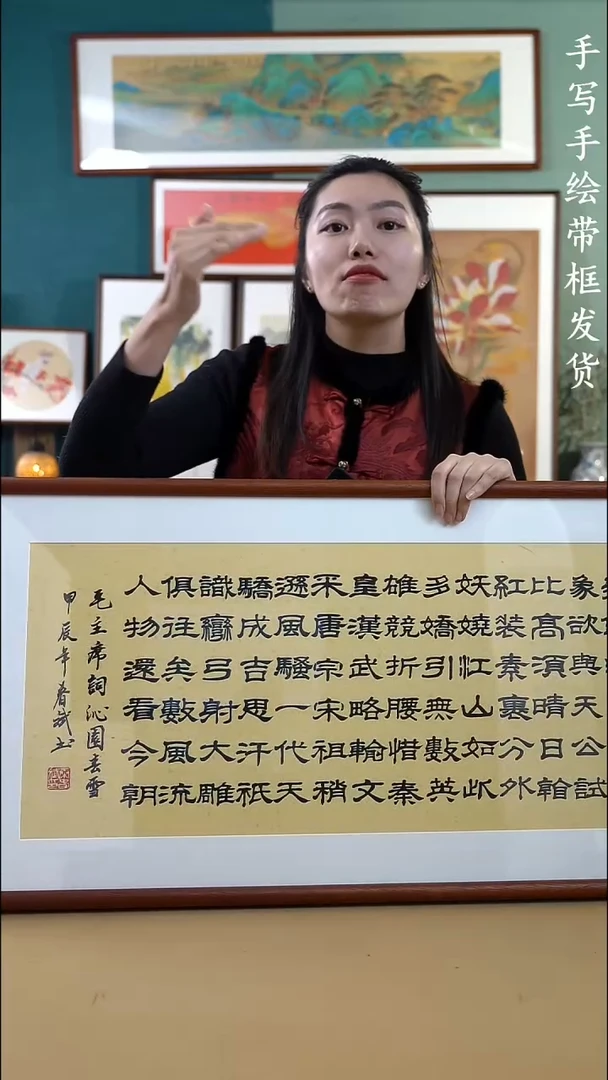 手写手绘带框发货
象欲與天公試
比高須晴日看
紅裝素裹分外
妖嬈江山如此
多嬌引無數英
雄競折腰惜秦
皇漢武略輸文
采唐宗宋祖稍
遜風騷一代天
驕成吉思汗祇
識彎弓射大雕
俱往矣數風流
人物還看今朝
毛主席詞沁園春雪
甲辰年春斌书